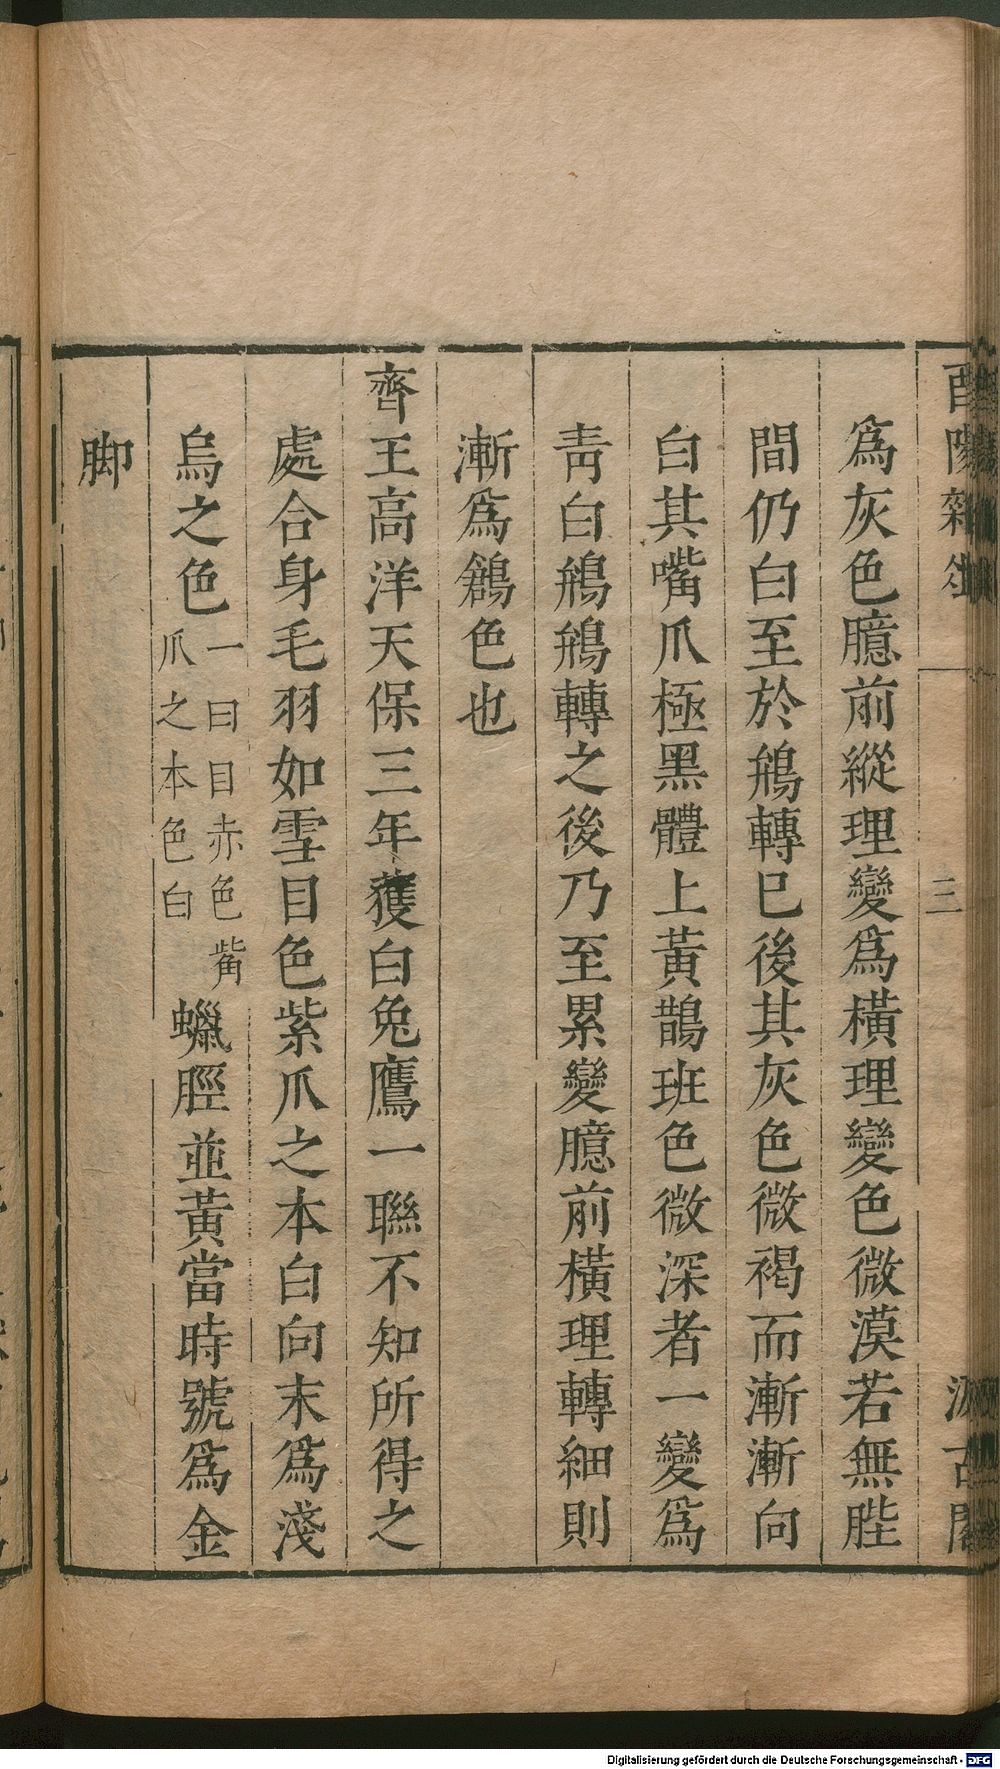 酉陽雜俎
三
汲古閣
爲灰色臆前縱理變爲橫理變色微漠若無䏶
間仍白至於鴘轉巳後其灰色微褐而漸漸向
白其嘴爪極黑體上黃鵲班色微深者一變爲
青白鴘鴘轉之後乃至累變臆前橫理轉細則
漸爲鶬色也
齊王高洋天保三年獲白兔鷹一聯不知所得之
處合身毛羽如雪目色紫爪之本白向末爲淺
烏之色一曰目赤色觜爪之本色白蠟脛並黃當時號爲金
脚
Digitalisierung gefördert durch die Deutsche Forschungsgemeinschaft - DFG